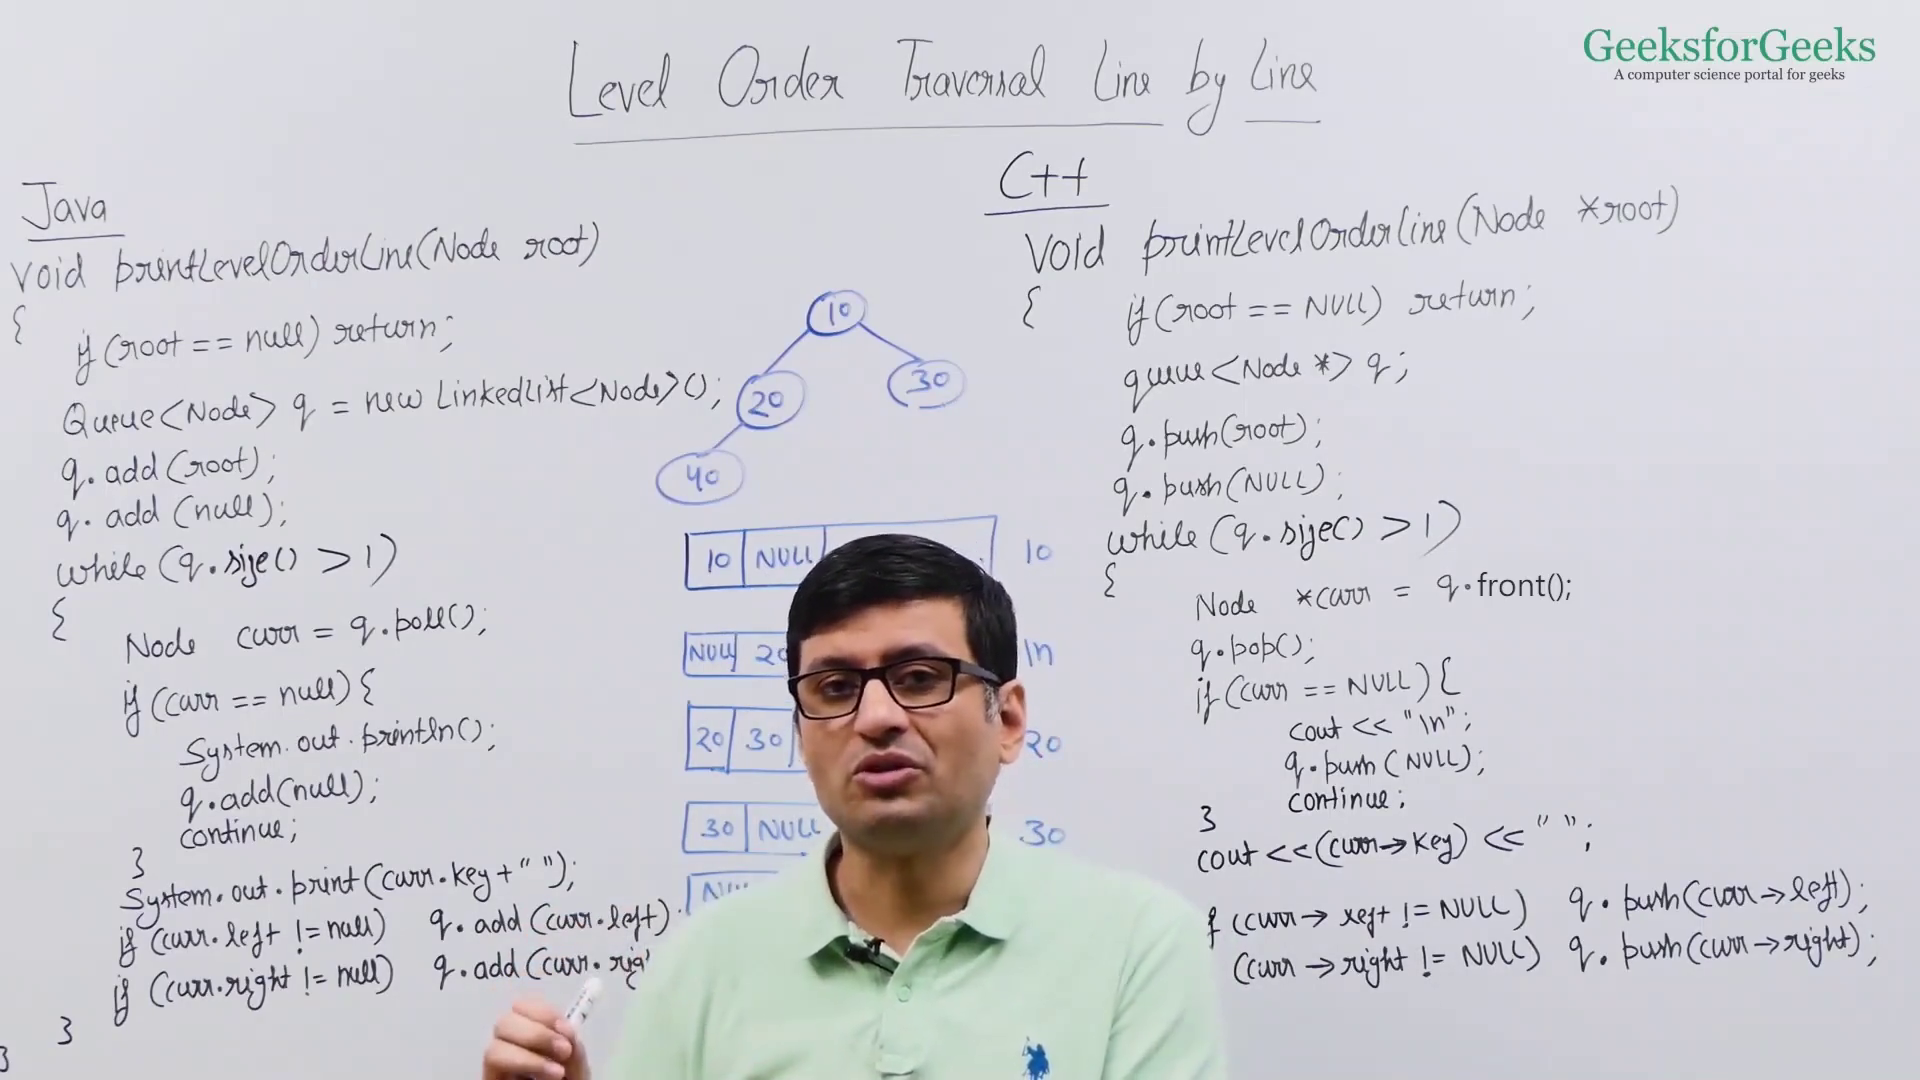 GeeksforGeeks
A computer science portal for geeks
Level Order Traversal Line by Line
Java
void printLevelOrderLine(Node root)
{
if(root == null) return;
Queue<Node> q = new LinkedList<Node>();
q.add(root);
q.add(null);
while (q.size() > 1)
{
Node curr = q.poll();
if (curr == null) {
System.out.println();
q.add(null);
continue;
}
System.out.print(curr.key+" ");
if (curr.left != null) q.add(curr.left);
if (curr.right != null) q.add(curr.righ
}
}
10
20 30
40
10 NULL 10
NULL 20 \n
20 30 20
30 NULL 30
C++
void printLevelOrderLine(Node *root)
{
if(root == NULL) return;
queue<Node *> q;
q.push(root);
q.push(NULL);
while (q.size() > 1)
{
Node *curr = q.front();
q.pop();
if(curr == NULL) {
cout << "\n";
q.push(NULL);
continue;
}
cout <<(curr->key) << " ";
f (curr-> left != NULL) q.push(curr->left);
(curr->right != NULL) q.push(curr->right);